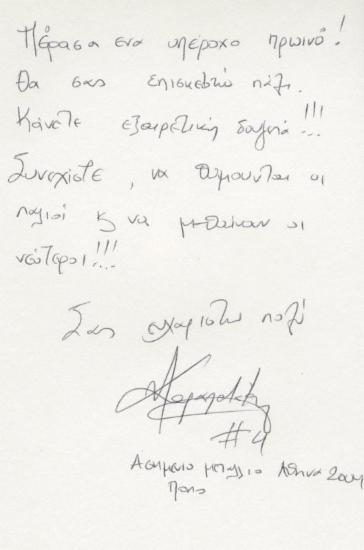 Πέρασα ενα υπέροχο πρωινό!
Θα σας επισκεφτώ πάλι.
Κάνετε εξαιρετική δουλειά!!!
Συνεχίστε, να θυμούνται οι
παλιοί κ να μαθαίνουν οι
νεώτεροι!!!
Σας ευχαριστώ πολύ
#4
Ασημένιο μετάλλιο Αθήνα 2004
Πολο